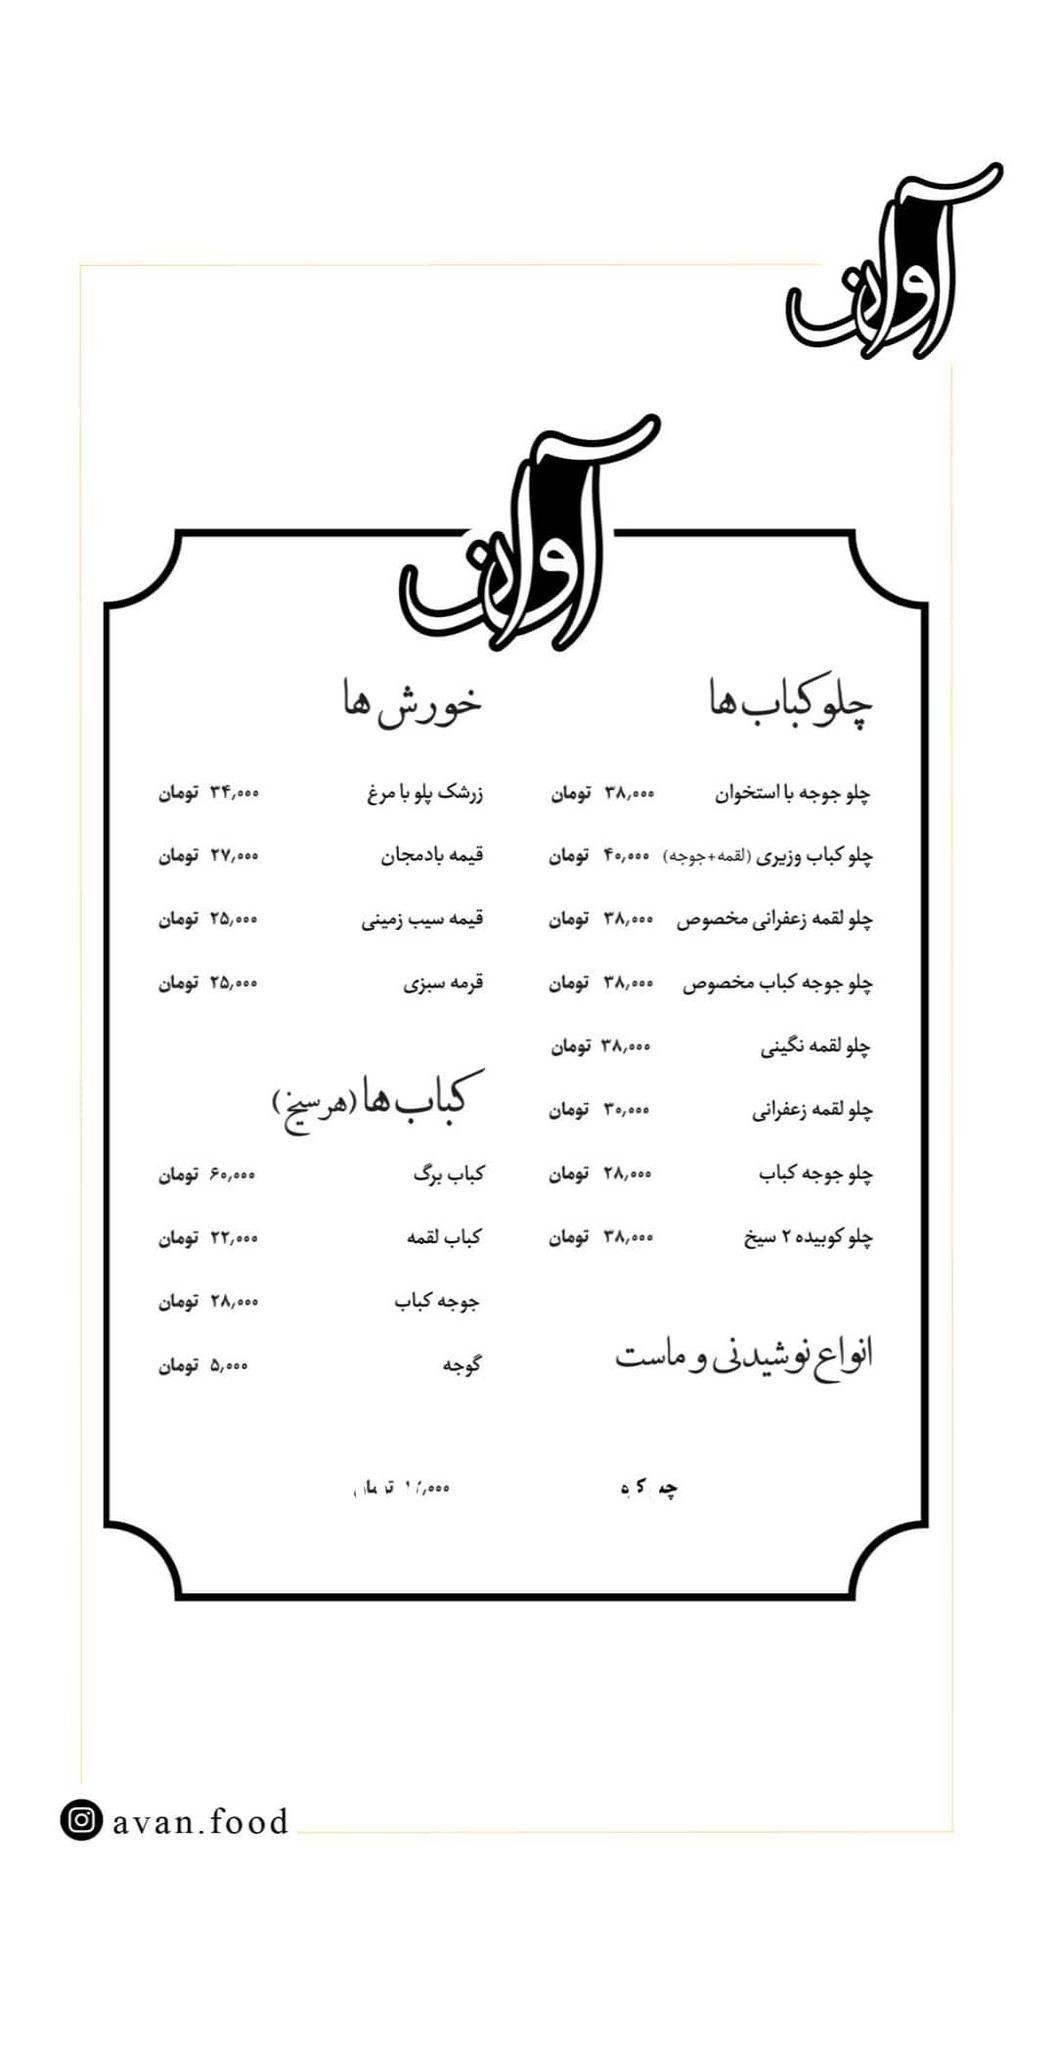 آوان
آوان
چلوکباب ها
چلو جوجه با استخوان ۳۸,۰۰۰ تومان
چلو کباب وزیری (لقمه+جوجه) ۴۰,۰۰۰ تومان
چلو لقمه زعفرانی مخصوص ۳۸,۰۰۰ تومان
چلو جوجه کباب مخصوص ۳۸,۰۰۰ تومان
چلو لقمه نگینی ۳۸,۰۰۰ تومان
چلو لقمه زعفرانی ۳۰,۰۰۰ تومان
چلو جوجه کباب ۲۸,۰۰۰ تومان
چلو کوبیده ۲ سیخ ۳۸,۰۰۰ تومان
انواع نوشیدنی و ماست
خورش ها
زرشک پلو با مرغ ۳۴,۰۰۰ تومان
قیمه بادمجان ۲۷,۰۰۰ تومان
قیمه سیب زمینی ۲۵,۰۰۰ تومان
قرمه سبزی ۲۵,۰۰۰ تومان
کباب ها (هر سیخ)
کباب برگ ۶۰,۰۰۰ تومان
کباب لقمه ۲۲,۰۰۰ تومان
جوجه کباب ۲۸,۰۰۰ تومان
گوجه ۵,۰۰۰ تومان
تومان
avan.food